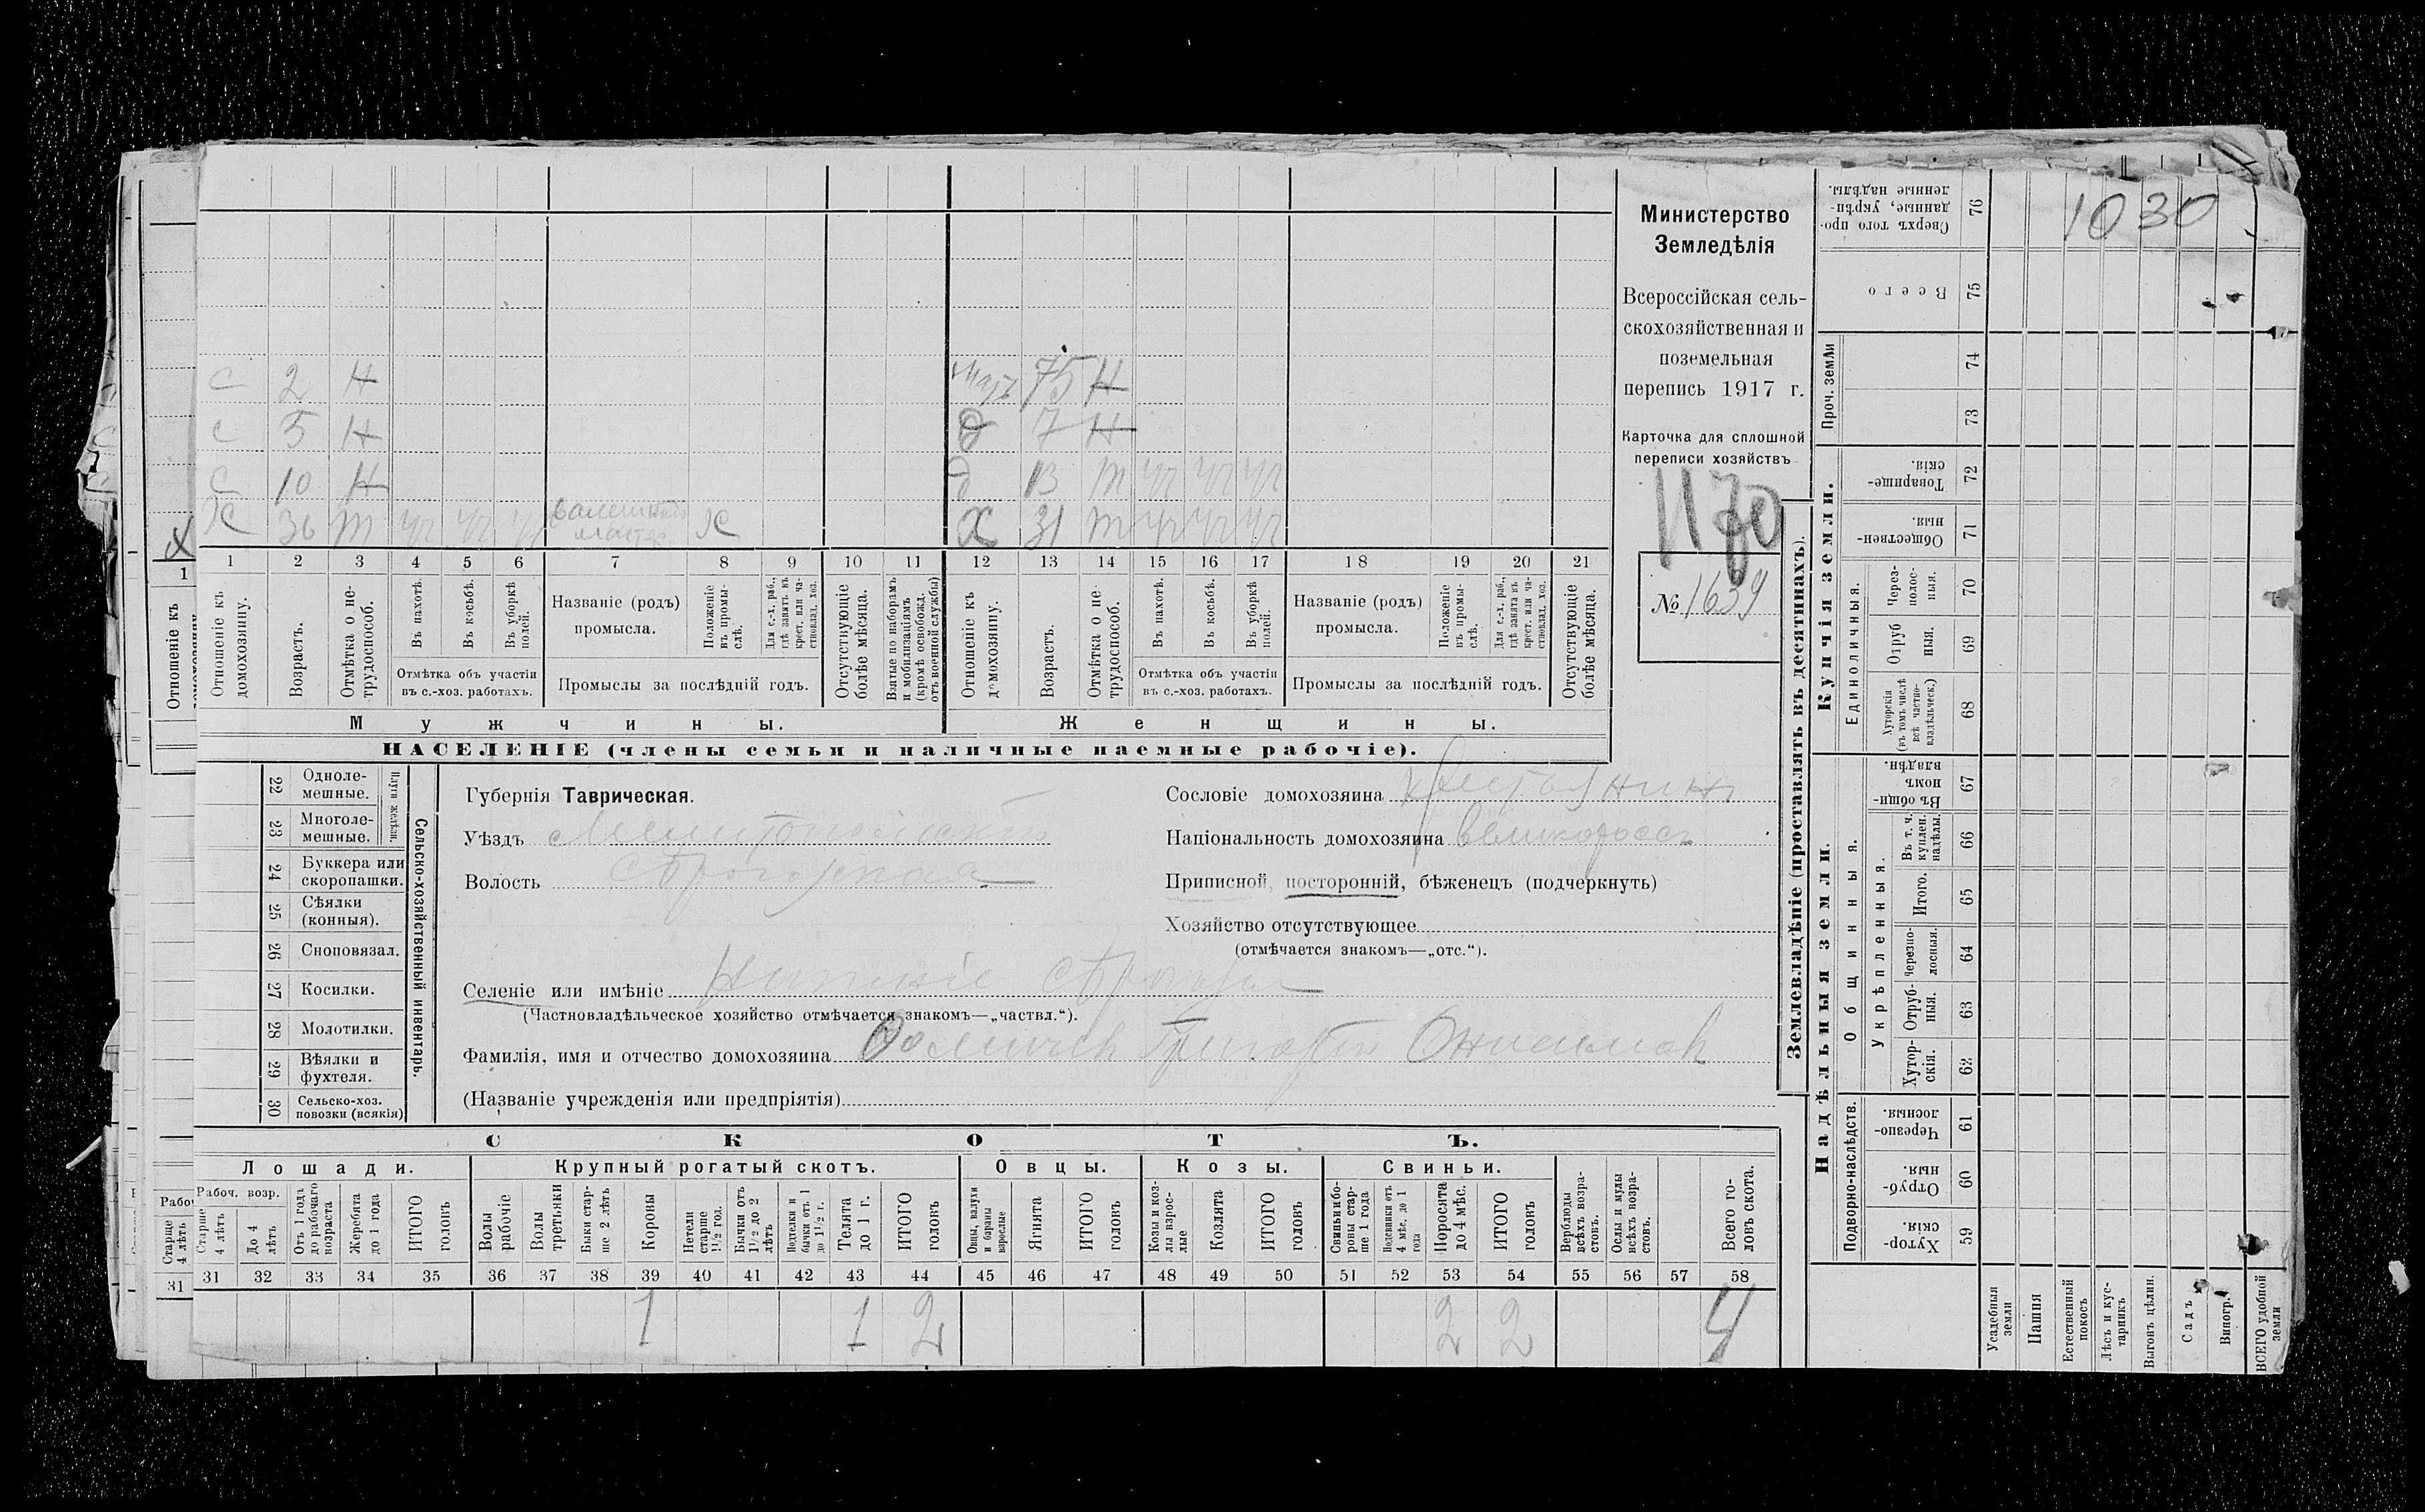 1030
Министерство
Земледѣлія
Всероссійская сель-
скохозяйственная и
поземельная
перепись 1917 г.
Карточка для сплошной
переписи хозяйствъ
1170
№ 1639
с 2 Н
с 5 Н
с 10 Н
Х 36 т уч уч уч Х
мать 75 Н
д 7 Н
д 13 т уч уч уч
Х 31 т уч уч уч
1 2 3 4 5 6 7 8 9 10 11 12 13 14 15 16 17 18 19 20 21
Отношеніе къ
домохозяину.
Возрастъ.
Отмѣтка о не-
трудоспособ.
Въ пахотѣ.
Въ косьбѣ.
Въ уборкѣ
полей.
Отмѣтка объ участіи
въ с.-хоз. работахъ.
Названіе (родъ)
промысла.
Положеніе
въ промы-
слѣ.
Для с.-х. раб.,
гдѣ занятъ въ
крест. или ча-
стновлад. хоз.
Промыслы за послѣдній годъ.
Отсутствующіе
болѣе мѣсяца.
Взятые по наборамъ
и мобилизаціямъ
(кромѣ освобожд.
отъ военной службы)
Отношеніе къ
домохозяину.
Возрастъ.
Отмѣтка о не-
трудоспособ.
Въ пахотѣ.
Въ косьбѣ.
Въ уборкѣ
полей.
Отмѣтка объ участіи
въ с.-хоз. работахъ.
Названіе (родъ)
промысла.
Положеніе
въ промы-
слѣ.
Для с.-х. раб.,
гдѣ занята въ
крест. или ча-
стновлад. хоз.
Промыслы за послѣдній годъ.
Отсутствующіе
болѣе мѣсяца.
Мужчины.
Женщины.
НАСЕЛЕНІЕ (члены семьи и наличные наемные рабочіе).
22 Одноле-
мешные.
23 Многоле-
мешные.
24 Буккера или
скоропашки.
25 Сѣялки
(конныя).
26 Сноповязал.
27 Косилки.
28 Молотилки.
29 Вѣялки и
фухтеля.
30 Сельско-хоз.
повозки (всякія)
Сельско-хозяйственный инвентарь.
Губернія Таврическая.
Уѣздъ Мелитопольскій
Волость Сѣрогозская
Сословіе домохозяина крестьянинъ
Національность домохозяина великороссъ
Приписной, посторонній, бѣженецъ (подчеркнуть)
Хозяйство отсутствующее
(отмѣчается знакомъ—„отс.“).
Селеніе или имѣніе Нижніе Сѣрогозы
(Частновладѣльческое хозяйство отмѣчается знакомъ—„частвл.“).
Фамилія, имя и отчество домохозяина
(Названіе учрежденія или предпріятія)
СКОТЪ.
Лошади.
Крупный рогатый скотъ.
Овцы.
Козы.
Свиньи.
Рабоч. возр.
Старше
4 лѣтъ
До 4
лѣтъ
Отъ 1 года
до рабочаго
возраста
Жеребята
до 1 года
ИТОГО
головъ
Волы
рабочіе
Волы
третьяки
Быки стар-
ше 2 лѣтъ
Коровы
Нетели
старше
1½ год.
Бычки отъ
1½ до 2
лѣтъ
Подтелки и
бычки отъ 1
до 1½ г.
Телята
до 1 г.
ИТОГО
головъ
Овцы, валухи
и бараны
взрослые
Ягнята
ИТОГО
головъ
Козы и коз-
лы взрос-
лые
Козлята
ИТОГО
головъ
Свиньи и бо-
ровы стар-
ше 1 года
Подсвинки отъ
4 мѣс. до 1
года
Поросята
до 4 мѣс.
ИТОГО
головъ
Верблюды
всѣхъ возра-
стовъ.
Ослы и мулы
всѣхъ возра-
стовъ.
Всего го-
ловъ скота.
31 32 33 34 35 36 37 38 39 40 41 42 43 44 45 46 47 48 49 50 51 52 53 54 55 56 57 58
1 1 2 2 2 4
Землевладѣніе (проставлять въ десятинахъ).
Купчія земли.
Надѣльныя земли.
Проч. земли
Единоличныя.
Общинныя.
Укрѣпленныя.
Подворно-наслѣдств.
Сверхъ того про-
данные, укрѣп-
ленные надѣлы.
76
Всего
75
74
73
Товарище-
скія.
72
Обществен-
ныя.
71
Через-
полос-
ныя.
70
Отруб
ныя.
69
Хуторскія
(въ томъ числѣ
всѣ частно-
владѣльческ.)
68
Въ общин-
номъ
владѣн.
67
Въ т. ч.
куплен.
надѣлы.
66
Итого.
65
Черезпо-
лосныя.
64
Отруб-
ныя.
63
Хутор-
скія.
62
Черезпо-
лосныя.
61
Отруб-
ныя.
60
Хутор-
скія.
59
Усадебныя
земли
Пашня
Естественный
покосъ
Лѣсъ и кус-
тарникъ
Выгонъ цѣлин.
Садъ
Виногр.
ВСЕГО удобной
земли